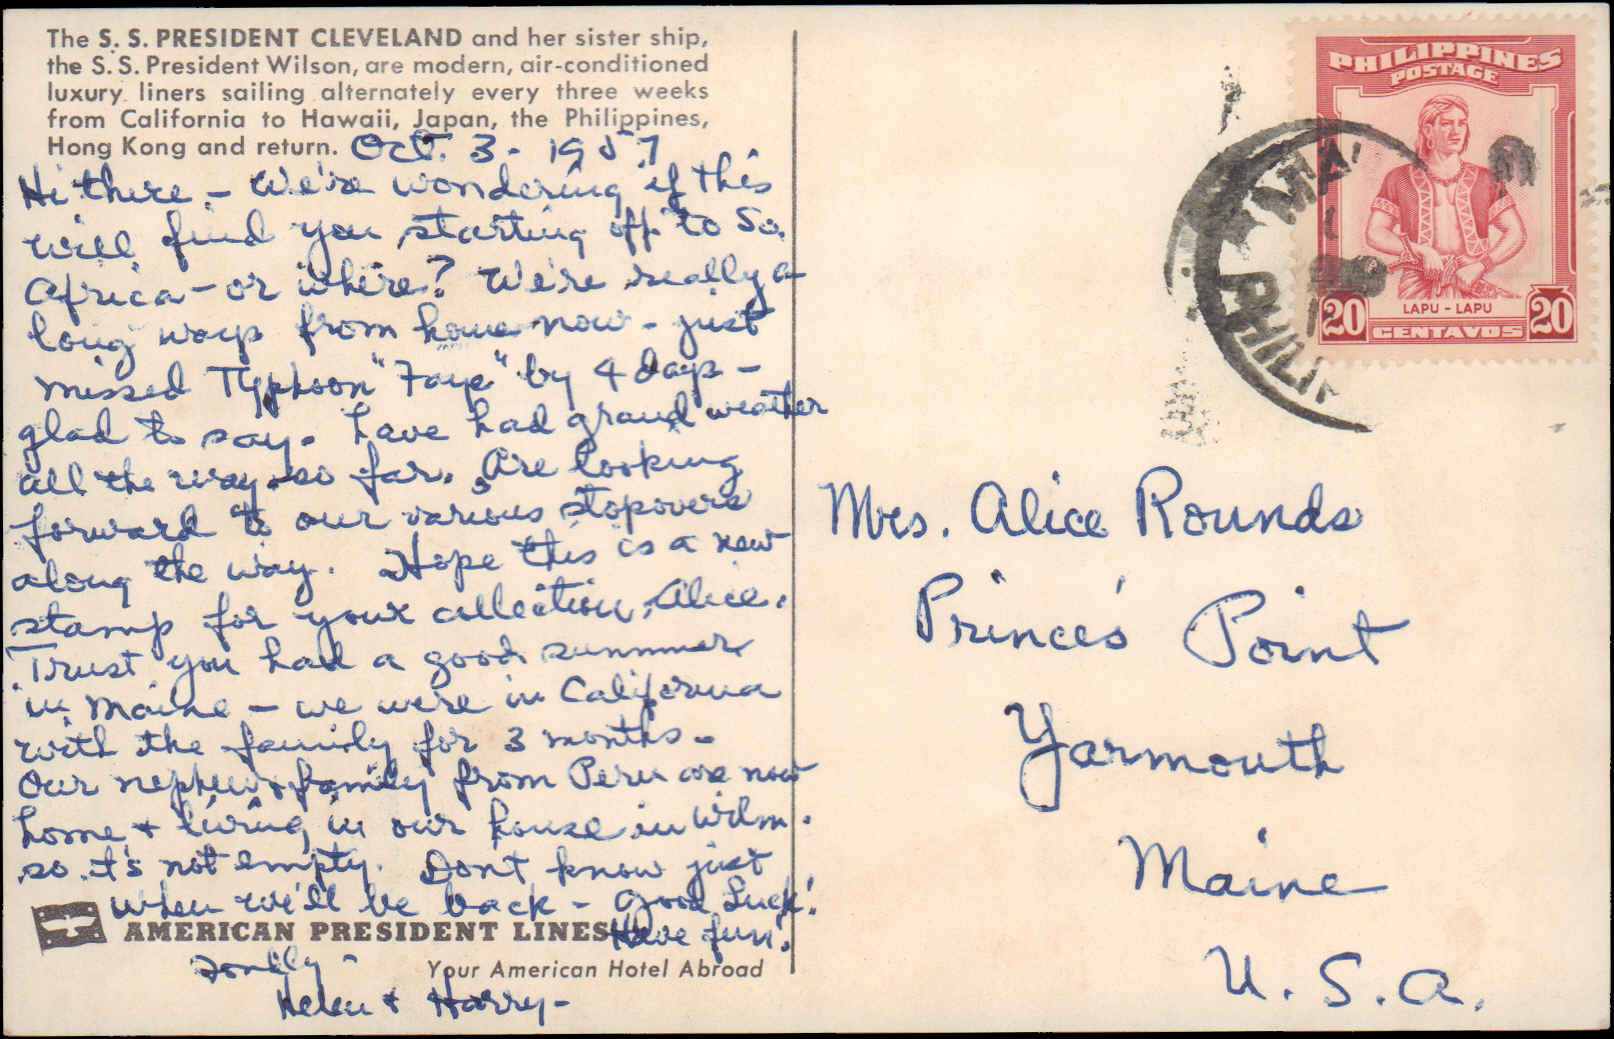 The S. S. PRESIDENT CLEVELAND and her sister ship,
the S. S. President Wilson, are modern, air-conditioned
luxury liners sailing alternately every three weeks
from California to Hawaii, Japan, the Philippines,
Hong Kong and return.
Oct. 3 - 1957
Hi there - We're wondering if this
will find you starting off to So.
Africa - or where? We're really a
long ways from home now - just
missed Typhoon "Faye" by 4 days -
glad to say. Have had grand weather
all the way so far. Are looking
forward to our various stopovers
along the way. Hope this is a new
stamp for your collection, Alice.
Trust you had a good summer
in Maine - we were in California
with the family for 3 months -
Our nephew & family from Peru are now
home & living in our house in Wilm.
so it's not empty. Don't know just
when we'll be back - Good Luck!
Have fun!
Fondly -
Helen & Harry -
AMERICAN PRESIDENT LINES
Your American Hotel Abroad
PHILIPPINES
POSTAGE
LAPU - LAPU
20 CENTAVOS 20
Mrs. Alice Rounds
Prince's Point
Yarmouth
Maine
U. S. A.